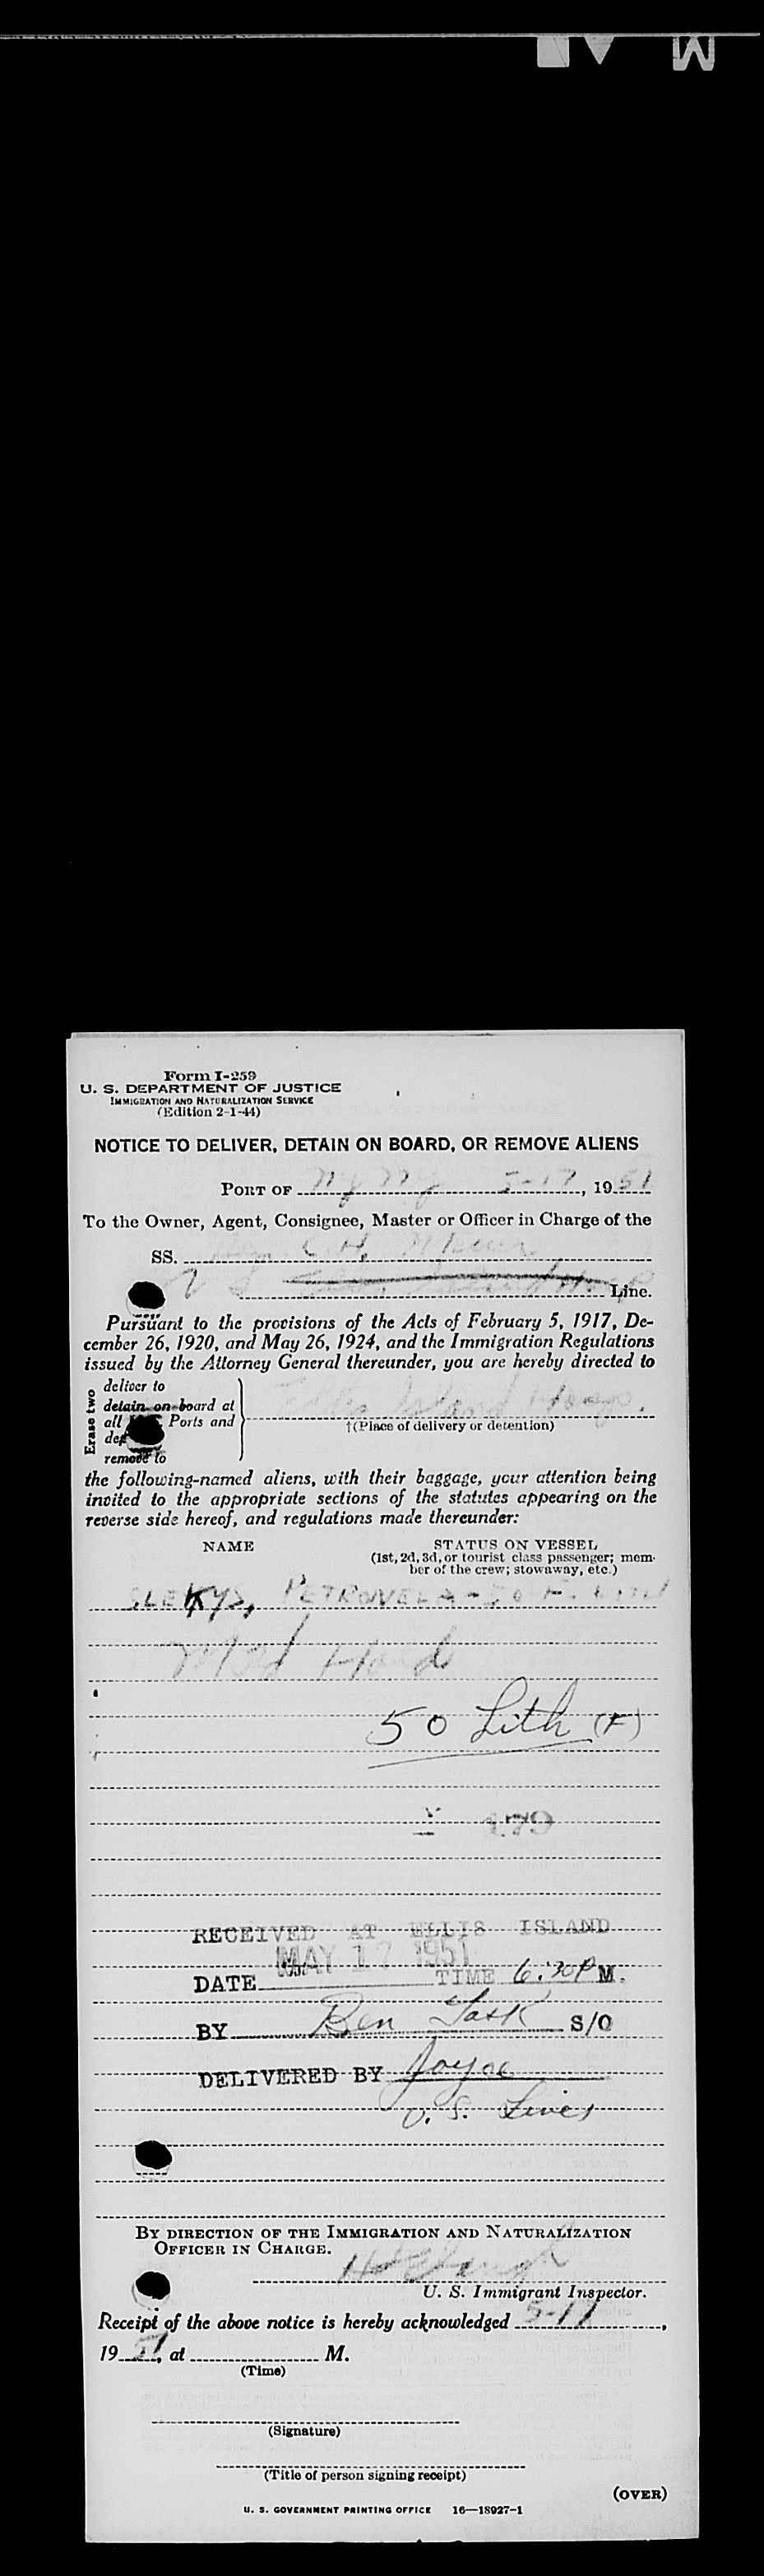 Form I-259
U. S. DEPARTMENT OF JUSTICE
IMMIGRATION AND NATURALIZATION SERVICE
(Edition 2-1-44)
NOTICE TO DELIVER, DETAIN ON BOARD, OR REMOVE ALIENS
PORT OF NY NY 5-17, 1951
To the Owner, Agent, Consignee, Master or Officer in Charge of the
SS.
U S Line.
Pursuant to the provisions of the Acts of February 5, 1917, De-
cember 26, 1920, and May 26, 1924, and the Immigration Regulations
issued by the Attorney General thereunder, you are hereby directed to
Erase two
deliver to
detain on board at
all Ports and
remove to
Ellis Island Hosp.
†(Place of delivery or detention)
the following-named aliens, with their baggage, your attention being
invited to the appropriate sections of the statutes appearing on the
reverse side hereof, and regulations made thereunder:
NAME STATUS ON VESSEL
(1st, 2d, 3d, or tourist class passenger; mem-
ber of the crew; stowaway, etc.)
SLEKYS, PETRONELA - 50 F. LITH
Med Hold
50 Lith (F)
179
RECEIVED AT ELLIS ISLAND
MAY 17 1951
DATE TIME 6:30 P M.
BY Ben S/O
DELIVERED BY Joyce
U. S. Lines
BY DIRECTION OF THE IMMIGRATION AND NATURALIZATION
OFFICER IN CHARGE.
U. S. Immigrant Inspector.
Receipt of the above notice is hereby acknowledged 5-17,
1951, at M.
(Time)
(Signature)
(Title of person signing receipt)
(OVER)
U. S. GOVERNMENT PRINTING OFFICE 16—18927-1